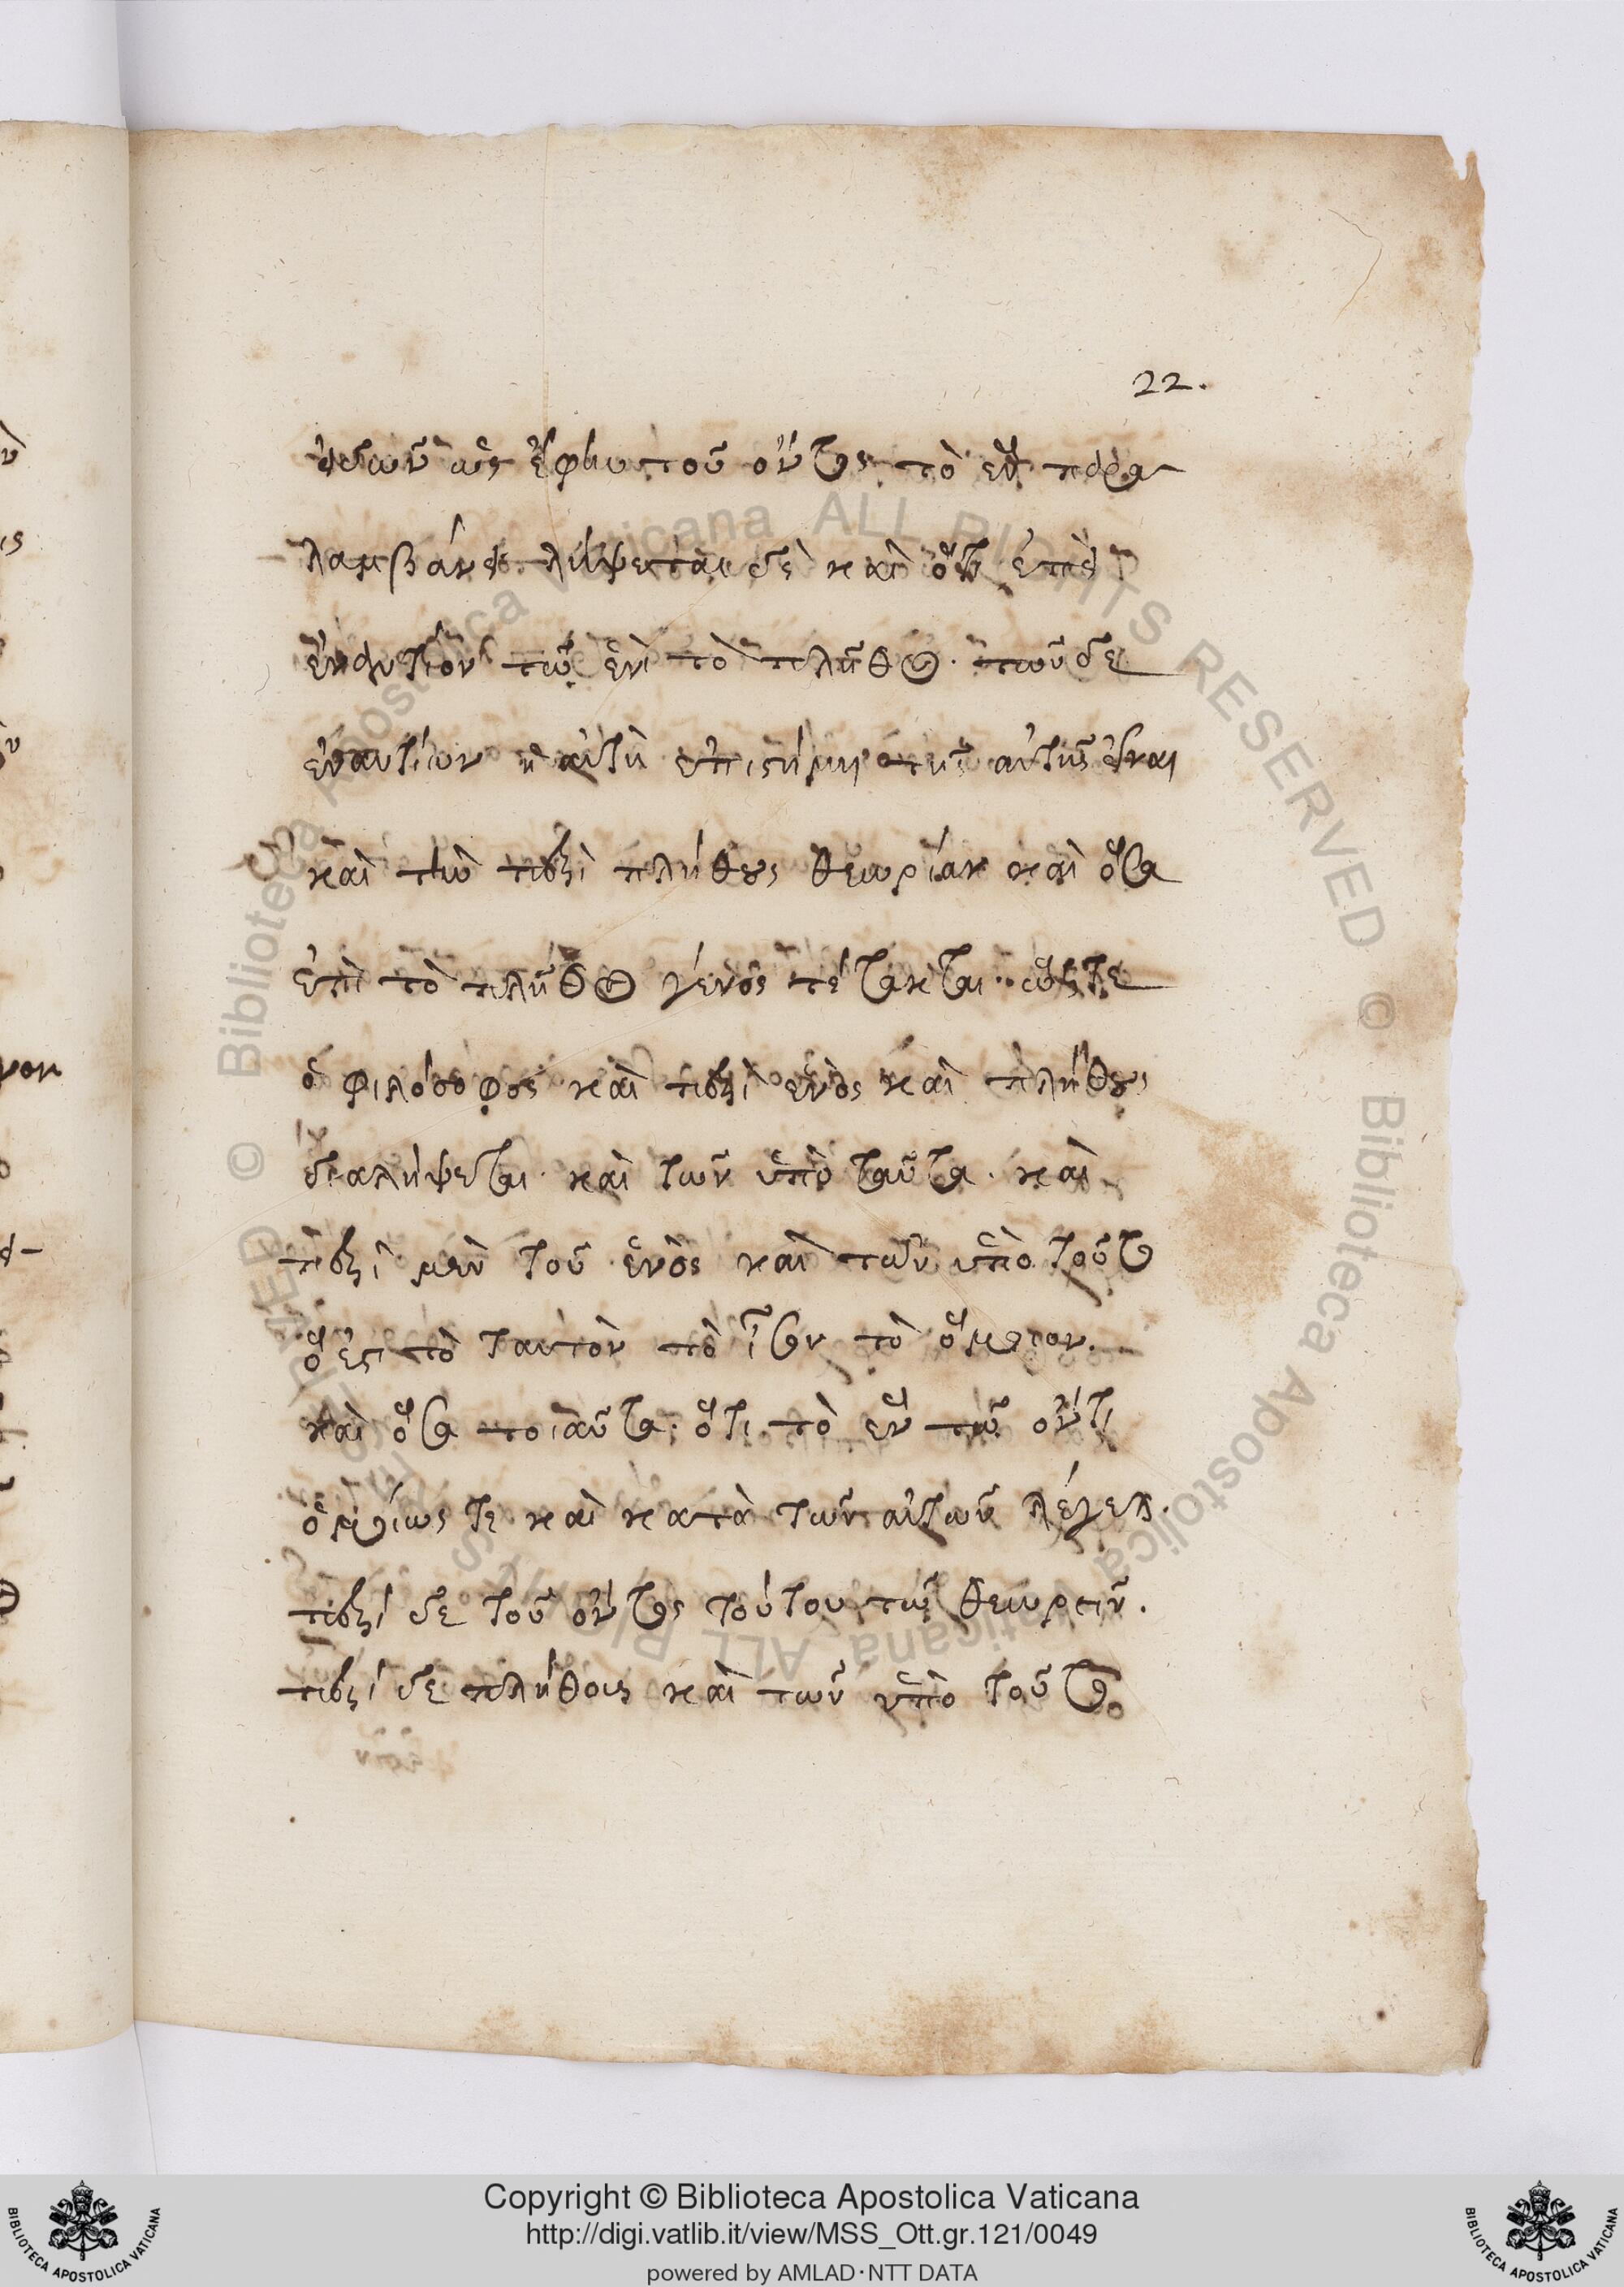 22.
εἰδῶν ὡς ἐφ᾽ ὑπτοῦ ὄντος τὸ ἓν παρα
λαμβάνει. λείψεται δὲ καὶ ὅτι ἐπεὶ
ἐναντίον τῷ ἑνὶ τὸ πλῆθος. τῶν δὲ
ἐναντίων ἡ αὐτὴ ἐπιστήμη τῆς αὐτῆς εἶναι
καὶ τὴν περὶ πλήθους θεωρίαν καὶ ὅσα
ἐπὶ τὸ πλῆθος γένος τέτακται. ὥστε
ὁ φιλόσοφος καὶ περὶ ἑνὸς καὶ πλήθους
διαλήψεται. καὶ τῶν ὑπὸ ταῦτα. καὶ
περὶ μὲν τοῦ ἑνὸς καὶ τῶν ὑπὸ τοῦτο
ὅ ἐστι τὸ ταυτὸν τὸ ἴσον τὸ ὅμοιον.
καὶ ὅσα τοιαῦτα. ὅτι τὸ ἓν τῷ ὄντι
ὁμοίως τε καὶ κατὰ τῶν αὐτῶν λέγεται.
περὶ δὲ τοῦ ὄντος τούτου τῷ θεωρεῖν.
περὶ δὲ πλήθους καὶ τῶν ὑπὸ τοῦτο
Copyright © Biblioteca Apostolica Vaticana
http://digi.vatlib.it/view/MSS_Ott.gr.121/0049
powered by AMLAD·NTT DATA
BIBLIOTECA APOSTOLICA VATICANA
BIBLIOTECA APOSTOLICA VATICANA
© Biblioteca Apostolica Vaticana ALL RIGHTS RESERVED © Biblioteca Apostolica Vaticana ALL RIGHTS RESERVED